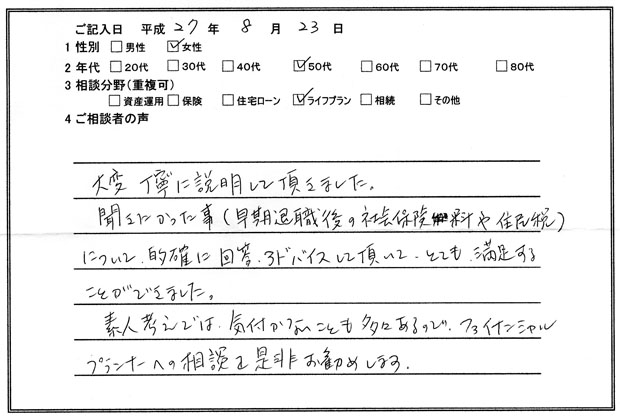 ご記入日 平成 27 年 8 月 23 日
1 性別 □男性 ☑女性
2 年代 □20代 □30代 □40代 ☑50代 □60代 □70代 □80代
3 相談分野(重複可)
□資産運用 □保険 □住宅ローン ☑ライフプラン □相続 □その他
4 ご相談者の声
大変 丁寧に説明して頂きました。
聞きたかった事(早期退職後の社会保険料や住民税)
について、的確に回答、アドバイスして頂いて、とても 満足する
ことができました。
素人考えでは、気付かないことも多々あるので、ファイナンシャル
プランナーへの相談を是非お勧めします.